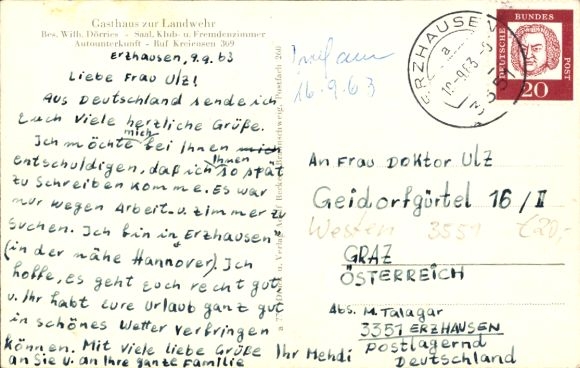 Gasthaus zur Landwehr
Bes. Wilh. Dörries - Saal, Klub- u. Fremdenzimmer
Autounterkunft - Ruf Kreiensen 369
Erzhausen, 9.9.63
Liebe Frau Ulz!
Aus Deutschland sende ich
Euch Viele herzliche Grüße.
Ich möchte mich bei Ihnen mich
entschuldigen, daß ich Ihnen so spät
zu schreiben komme. Es war
nur wegen Arbeit u. Zimmer zu
suchen. Ich bin in Erzhausen
(in der nähe Hannover). Ich
hoffe, es geht euch recht gut
u. Ihr habt eure Urlaub ganz gut
in schönes Wetter verbringen
können. Mit viele liebe Grüße Ihr Mehdi
an Sie u. an Ihre ganze Familie
16.9.63
ERZHAUSEN
a
3351
DEUTSCHE BUNDESPOST
20
An Frau Doktor Ulz
Geidorfgürtel 16/II
Westen 3551 €20,-
GRAZ
ÖSTERREICH
Abs. M. Talagar
3351 ERZHAUSEN
Postlagernd
Deutschland